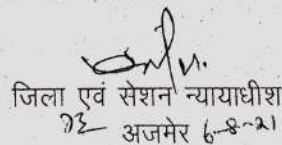 जिला एवं सेशन न्यायाधीश
अजमेर 6-8-21